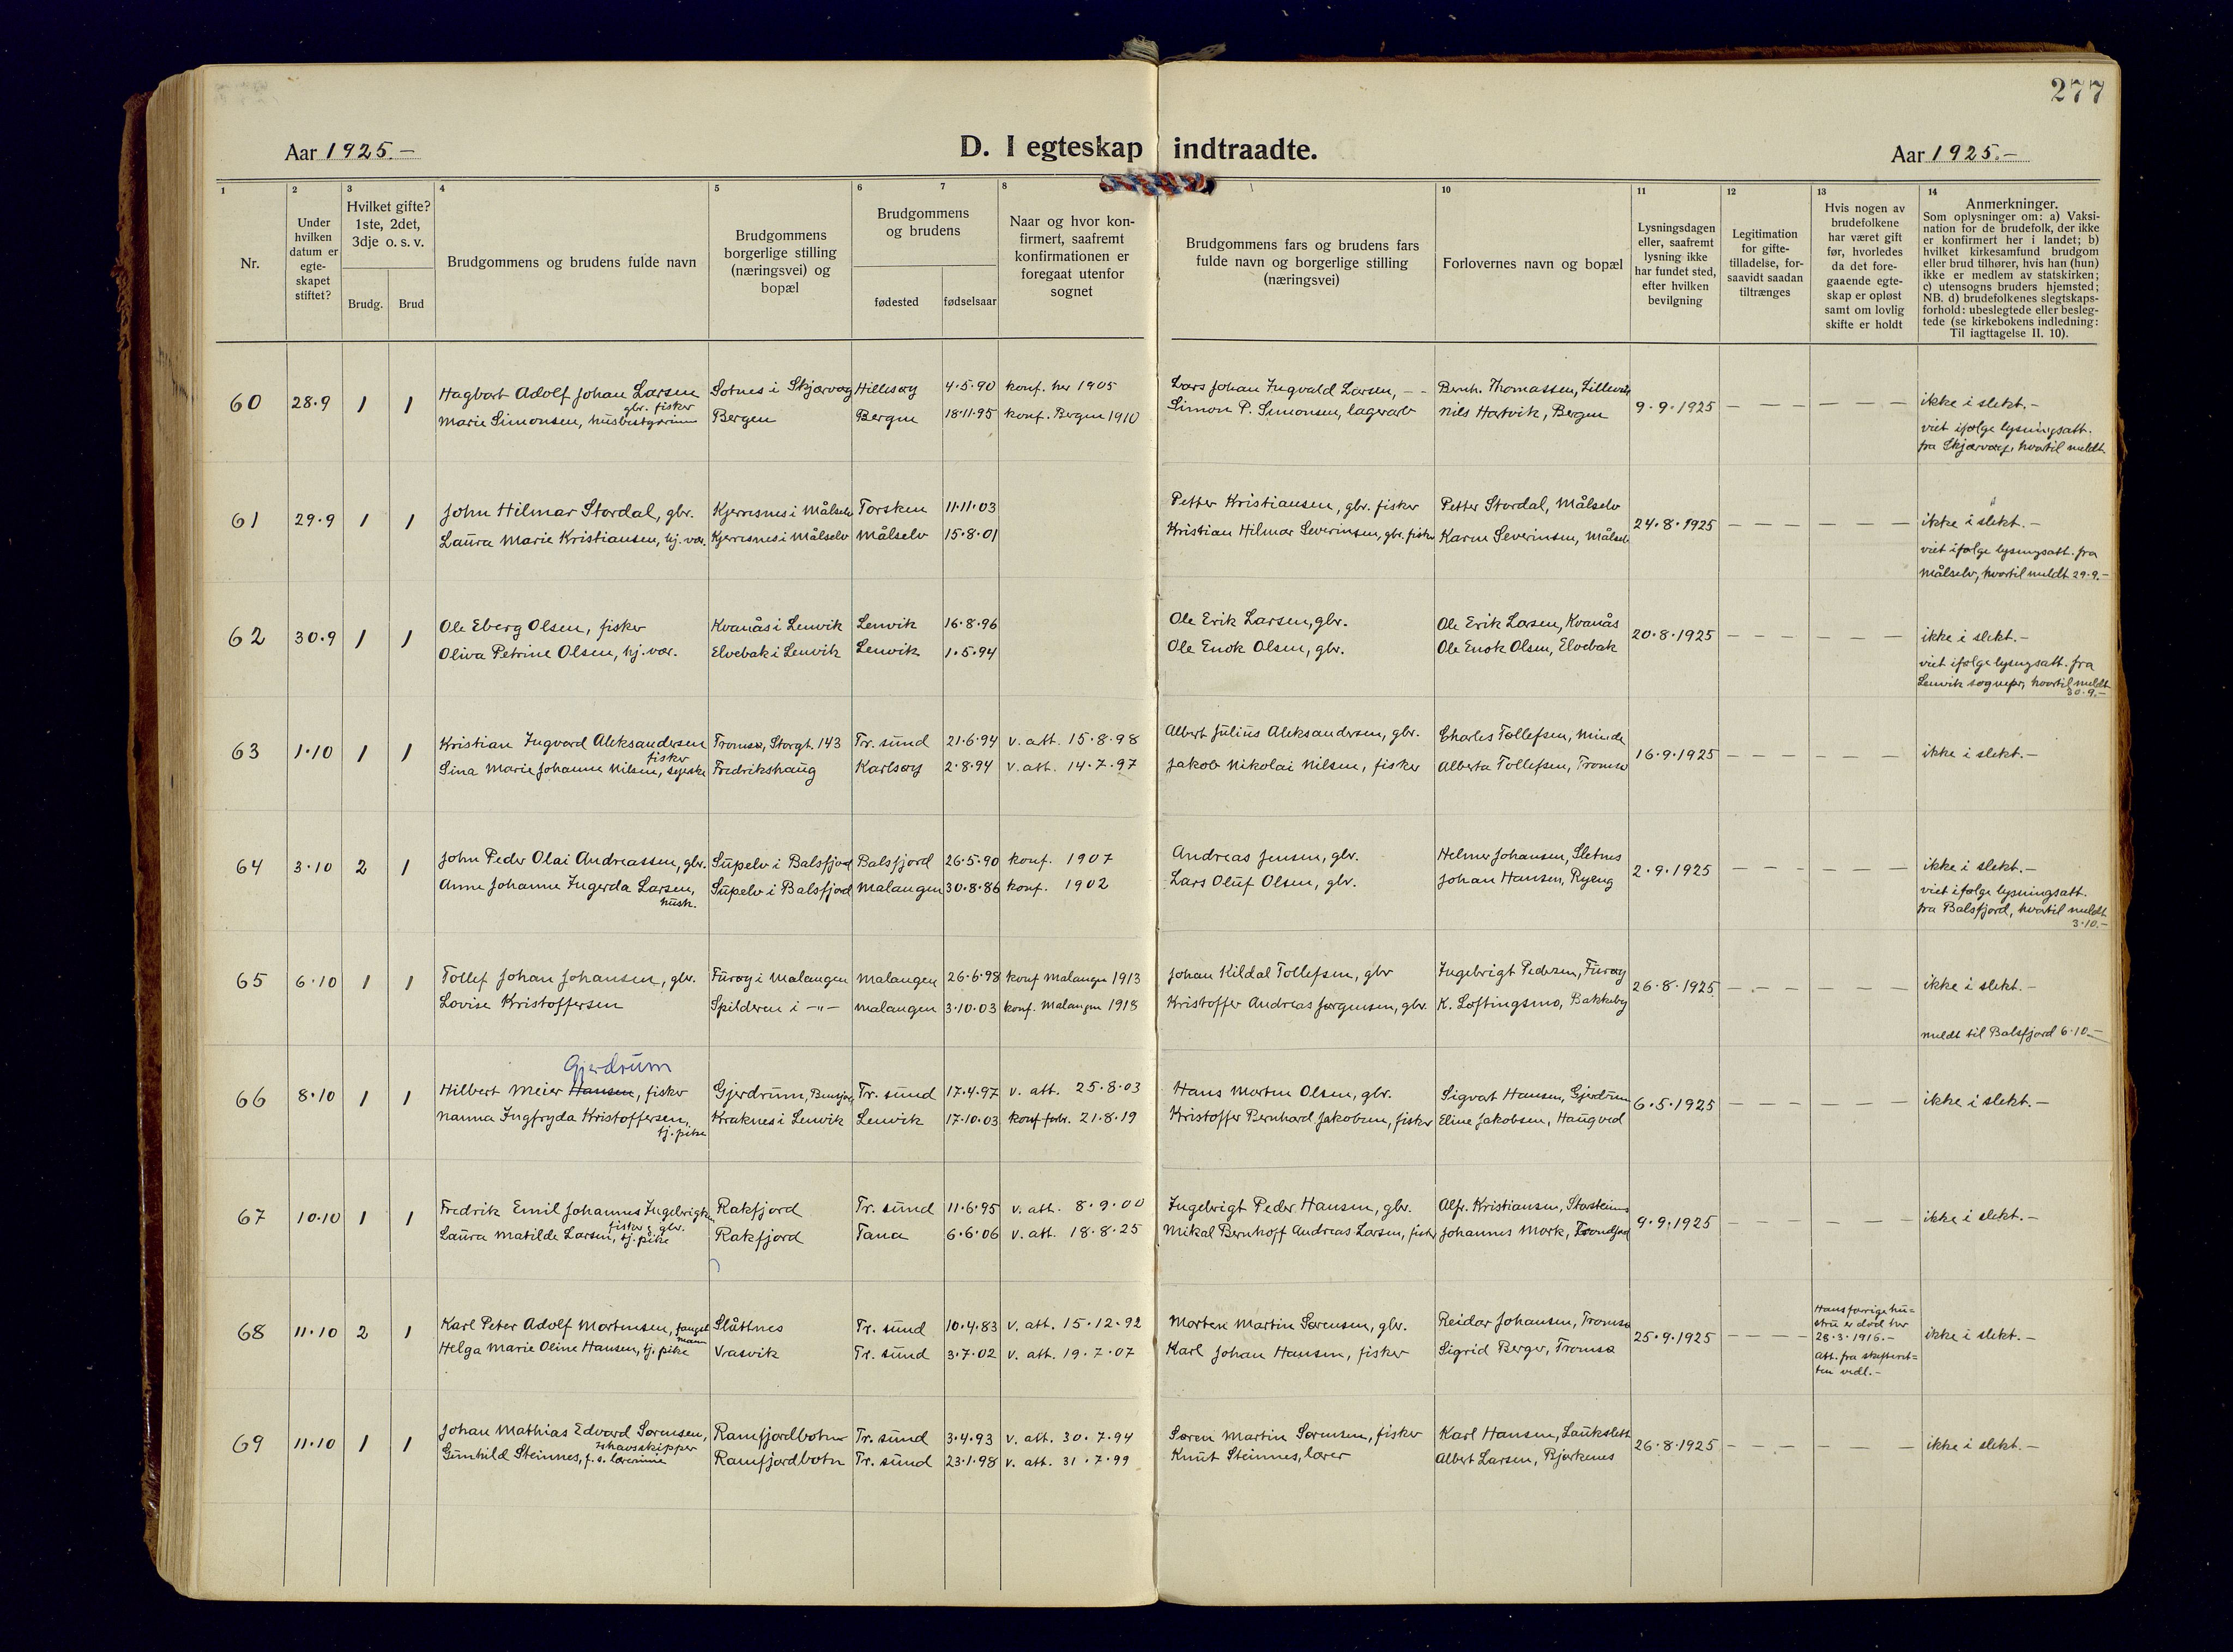 277
Aar 1925.-
D. I egteskap indtraadte.
Aar 1925.-
1 2 3 4 5 6 7 8 10 11 12 13 14
Nr.
Under hvilken datum er egte-skapet stiftet?
Hvilket gifte? 1ste, 2det, 3dje o. s. v.
Brudg. Brud
Brudgommens og brudens fulde navn
Brudgommens borgerlige stilling (næringsvei) og bopæl
Brudgommens og brudens
fødested fødselsaar
Naar og hvor kon-firmert, saafremt konfirmationen er foregaat utenfor sognet
Brudgommens fars og brudens fars fulde navn og borgerlige stilling (næringsvei)
Forlovernes navn og bopæl
Lysningsdagen eller, saafremt lysning ikke har fundet sted, efter hvilken bevilgning
Legitimation for gifte-tilladelse, for-saavidt saadan tiltrænges
Hvis nogen av brudefolkene har været gift før, hvorledes da det fore-gaaende egte-skap er opløst samt om lovlig skifte er holdt
Anmerkninger.
Som oplysninger om: a) Vaksi-nation for de brudefolk, der ikke er konfirmert her i landet; b) hvilket kirkesamfund brudgom eller brud tilhører, hvis han (hun) ikke er medlem av statskirken; c) utensogns bruders hjemsted; NB. d) brudefolkenes slegtskaps-forhold: ubeslegtede eller besleg-tede (se kirkebokens indledning: Til iagttagelse II. 10).
60 28.9 1 1 Hagbart Adolf Johan Larsen gbr. fisker Sotnes i Skjærvøy Hillesøy 4.5.90 konf. her 1905 Lars Johan Ingvald Larsen, - - Bernh. Thomassen, 9.9.1925 - - - - - - ikke i slekt.-
Marie Simonsen, husbestyrerinne Bergen Bergen 18.11.95 konf. Bergen 1910 Simon P. Simonsen, lagerarb Nils Hartvik, Bergen
viet ifølge lysningsatt.
fra Skjærvøy, hvortil meldt
61 29.9 1 1 John Hilmar Stordal, gbr. Kjerresnes i Målselv Torsken 11.11.03 Petter Kristiansen, gbr. fisker Petter Stordal, Målselv 24.8.1925 - - - - - - ikke i slekt.-
Laura Marie Kristiansen, hj. vær. Kjerresnes i Målselv Målselv 15.8.01 Kristian Hilmar Severinsen, gbr. fisker Karen Severinsen, Målselv
viet ifølge lysningsatt. fra
Målselv, hvortil meldt 29.9.-
62 30.9 1 1 Ole Eberg Olsen, fisker Kvanås i Lenvik Lenvik 16.8.96 Ole Erik Larsen, gbr. Ole Erik Larsen, Kvanås 20.8.1925 - - - - - - ikke i slekt.-
Oliva Petrine Olsen, hj. vær. Elvebak i Lenvik Lenvik 1.5.94 Ole Enok Olsen, gbr. Ole Enok Olsen, Elvebak
viet ifølge lysngsatt. fra
Lenvik sognepr, hvortil meldt
30.9.-
63 1.10 1 1 Kristian Ingvard Aleksandersen fisker Tromsø, Storgt. 143 Tr. sund 21.6.94 v. att. 15.8.98 Albert Julius Aleksandersen, gbr. Charles Tollefsen, Minde 16.9.1925 - - - - - - ikke i slekt.-
Sina Marie Johanne Nilsen, syerske Fredrikshaug Karlsøy 2.8.94 v. att. 14.7.97 Jakob Nikolai Nilsen, fisker Alberta Tollefsen, Tromsø
64 3.10 2 1 John Peder Olai Andreassen, gbr. Supelv i Balsfjord Balsfjord 26.5.90 konf. 1907 Andreas Jensen, gbr. Helmer Johansen, Sletnes 2.9.1925 - - - - - - ikke i slekt.-
Anne Johanne Ingerda Larsen, hush. Supelv i Balsfjord Malangen 30.8.86 konf. 1902 Lars Oluf Olsen, gbr. Johan Hansen, Ryeng
viet ifølge lysningsatt.
fra Balsfjord, hvortil meldt
3.10.-
65 6.10 1 1 Tollef Johan Johansen, gbr. Furøy i Malangen Malangen 26.6.98 konf Malangen 1913 Johan Kildal Tollefsen, gbr Ingebrigt Pedersen, Furøy 26.8.1925 - - - - - - ikke i slekt.-
Lovise Kristoffersen Spilderen i -"- Malangen 3.10.03 konf. Malangen 1918 Kristoffer Andreas Jørgensen, gbr. K. Loftingsmo, Bakkeby
meldt til Balsfjord 6.10.-
Gjerdrum
66 8.10 1 1 Hilbert Meier Hansen, fisker Gjerdrum, Tr. sund 17.4.97 v. att. 25.8.03 Hans Morten Olsen, gbr. Sigvat Hansen, Gjerdrum 6.5.1925 - - - - - - ikke i slekt.-
Nanna Ingfryda Kristoffersen, tj. pike Kraknes i Lenvik Lenvik 17.10.03 konf forb. 21.8.19 Kristoffer Bernhard Jakobsen, fisker Eline Jakobsen, Haugved
67 10.10 1 1 Fredrik Emil Johannes Ingebrigtsen fisker, gbr. Rakfjord Tr. sund 11.6.95 v. att. 8.9.00 Ingebrigt Peder Hansen, gbr. Alfr. Kristiansen, Storsteinnes 9.9.1925 - - - - - - ikke i slekt.-
Laura Matilde Larsen, tj. pike Rakfjord Tana 6.6.06 v. att. 18.8.25 Mikal Bernhoff Andreas Larsen, fisker Johannes Mork, Tromsø
68 11.10 2 1 Karl Peter Adolf Mortensen, fangstmann Slåttnes Tr. sund 10.4.83 v. att. 15.12.92 Morten Martin Sørensen, gbr. Reidar Johansen, Tromsø 25.9.1925 - - - - Hans forrige hu=
stru er død her
28.3.1916.-
Att. fra skifteret=
ten vedl.- ikke i slekt.-
Helga Marie Oline Hansen, tj. pike Vrasvik Tr. sund 3.7.02 v. att. 19.7.07 Karl Johan Hansen, fisker Sigrid Berger, Tromsø
69 11.10 1 1 Johan Mathias Edvard Sørensen, ishavsskipper Ramfjordbotn Tr. sund 3.4.93 v. att. 30.7.94 Søren Martin Sørensen, fisker Karl Hansen, Laukslett 26.8.1925 - - - - - - ikke i slekt.-
Gunhild Steinnes, f. s. lærerinne Ramfjordbotn Tr. sund 23.1.98 v. att. 31.7.99 Knut Steinnes, lærer Albert Larsen, Bjørkenes